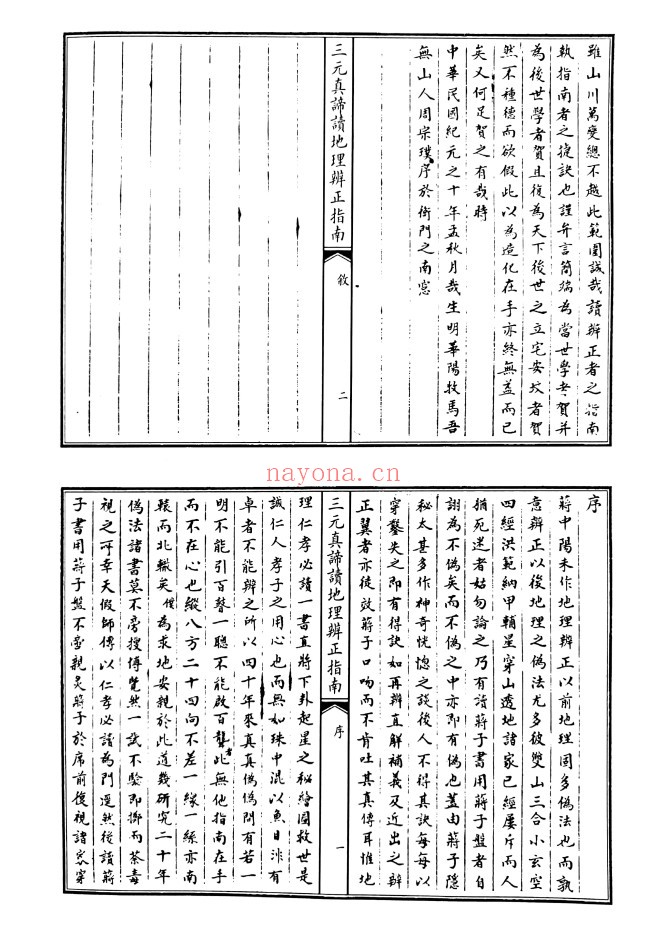 雖山川萬變總不越此範圍誠哉讀辨正者之指南
執指南者之捷訣也謹弁言簡端為當世學者賀并
為後世學者賀且復為天下後世之立宅安坟者賀
然不種德而欲假此以為造化在手亦終無益而已
矣又何足賀之有哉時
中華民國紀元之十年孟秋月哉生明華陽牧馬吾
無山人周宗璞序於衙門之南窓
三元真諦讀地理辨正指南
敘
二
nayona.cn
序
蔣中陽未作地理辨正以前地理固多偽法也而孰
意辨正以後地理之偽法尤多彼雙山三合小玄空
四經洪範納甲輔星穿山透地諸家已經屢斥而人
猶死迷者姑勿論之乃有讀蔣子書用蔣子盤者自
詡為不偽矣而不偽之中亦即有偽也蓋由蔣子隱
秘太甚多作神奇恍惚之談後人不得其訣每每以
穿鑿失之即有得訣如再辨直解補義及近出之辨
正翼者亦徒效蔣子口吻而不肯吐其真傳耳惟地
三元真諦讀地理辨正指南
序
一
理仁孝必讀一書直將下卦起星之秘繪圖救世是
誠仁人孝子之用心也而無如珠中混以魚目洴有
卓者不能辨之所以四十年來真真偽偽問有若一
明不能引百瞽一聰不能啟百聾者此無他指南在手
而不在心也縱八方二十四向不差一線一絲亦南
轅而北轍矣僕為求地安親於此道幾研究二十年
偽法諸書莫不旁搜博覽然一試不驗即擲而荼毒
視之耳幸天假師傳以仁孝必讀為門逕然後讀蔣
子書用蔣子盤不啻親炙蔣子於席前復視諸家穿